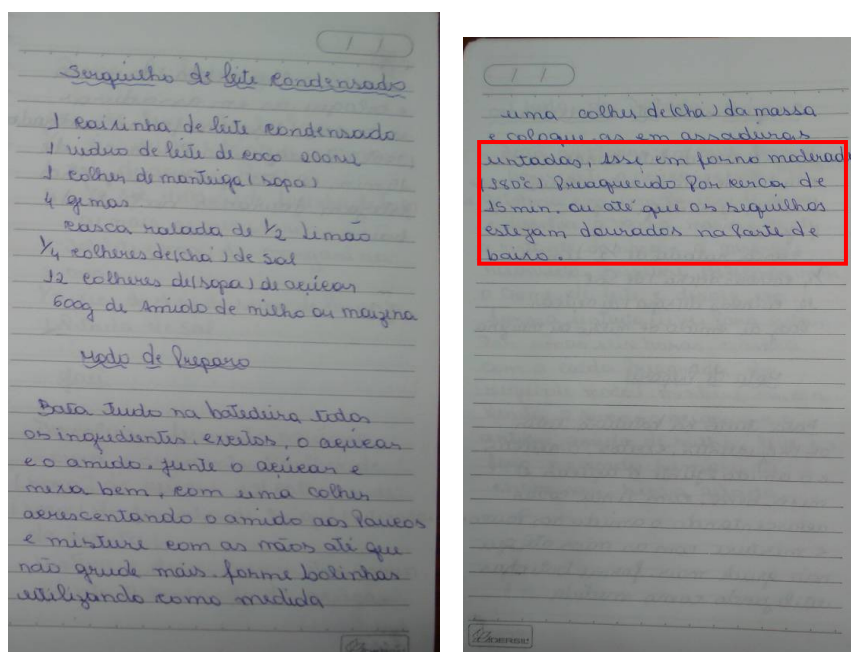 Serquilho de leite condensado
1 caixinha de leite condensado
1 vidro de leite de coco 200ml
1 colher de manteiga (sopa)
4 gemas
casca ralada de 1/2 limão
1/4 colheres de(chá) de sal
12 colheres de(sopa) de açúcar
600g de amido de milho ou maizena
Modo de Preparo
Bata tudo na batedeira todos
os ingredientes, exeitos, o açúcar
e o amido. junte o açúcar e
mexa bem, com uma colher
acrescentando o amido aos Poucos
e misture com as mãos até que
não grude mais. forme bolinhas
utilizando como medida
uma colher de(chá) da massa
e coloque as em assadeiras
untadas, Asse em forno moderad
(180°C) Preaquecido Por cerca de
15 min. ou até que os sequilhos
estejam dourados na Parte de
baixo.